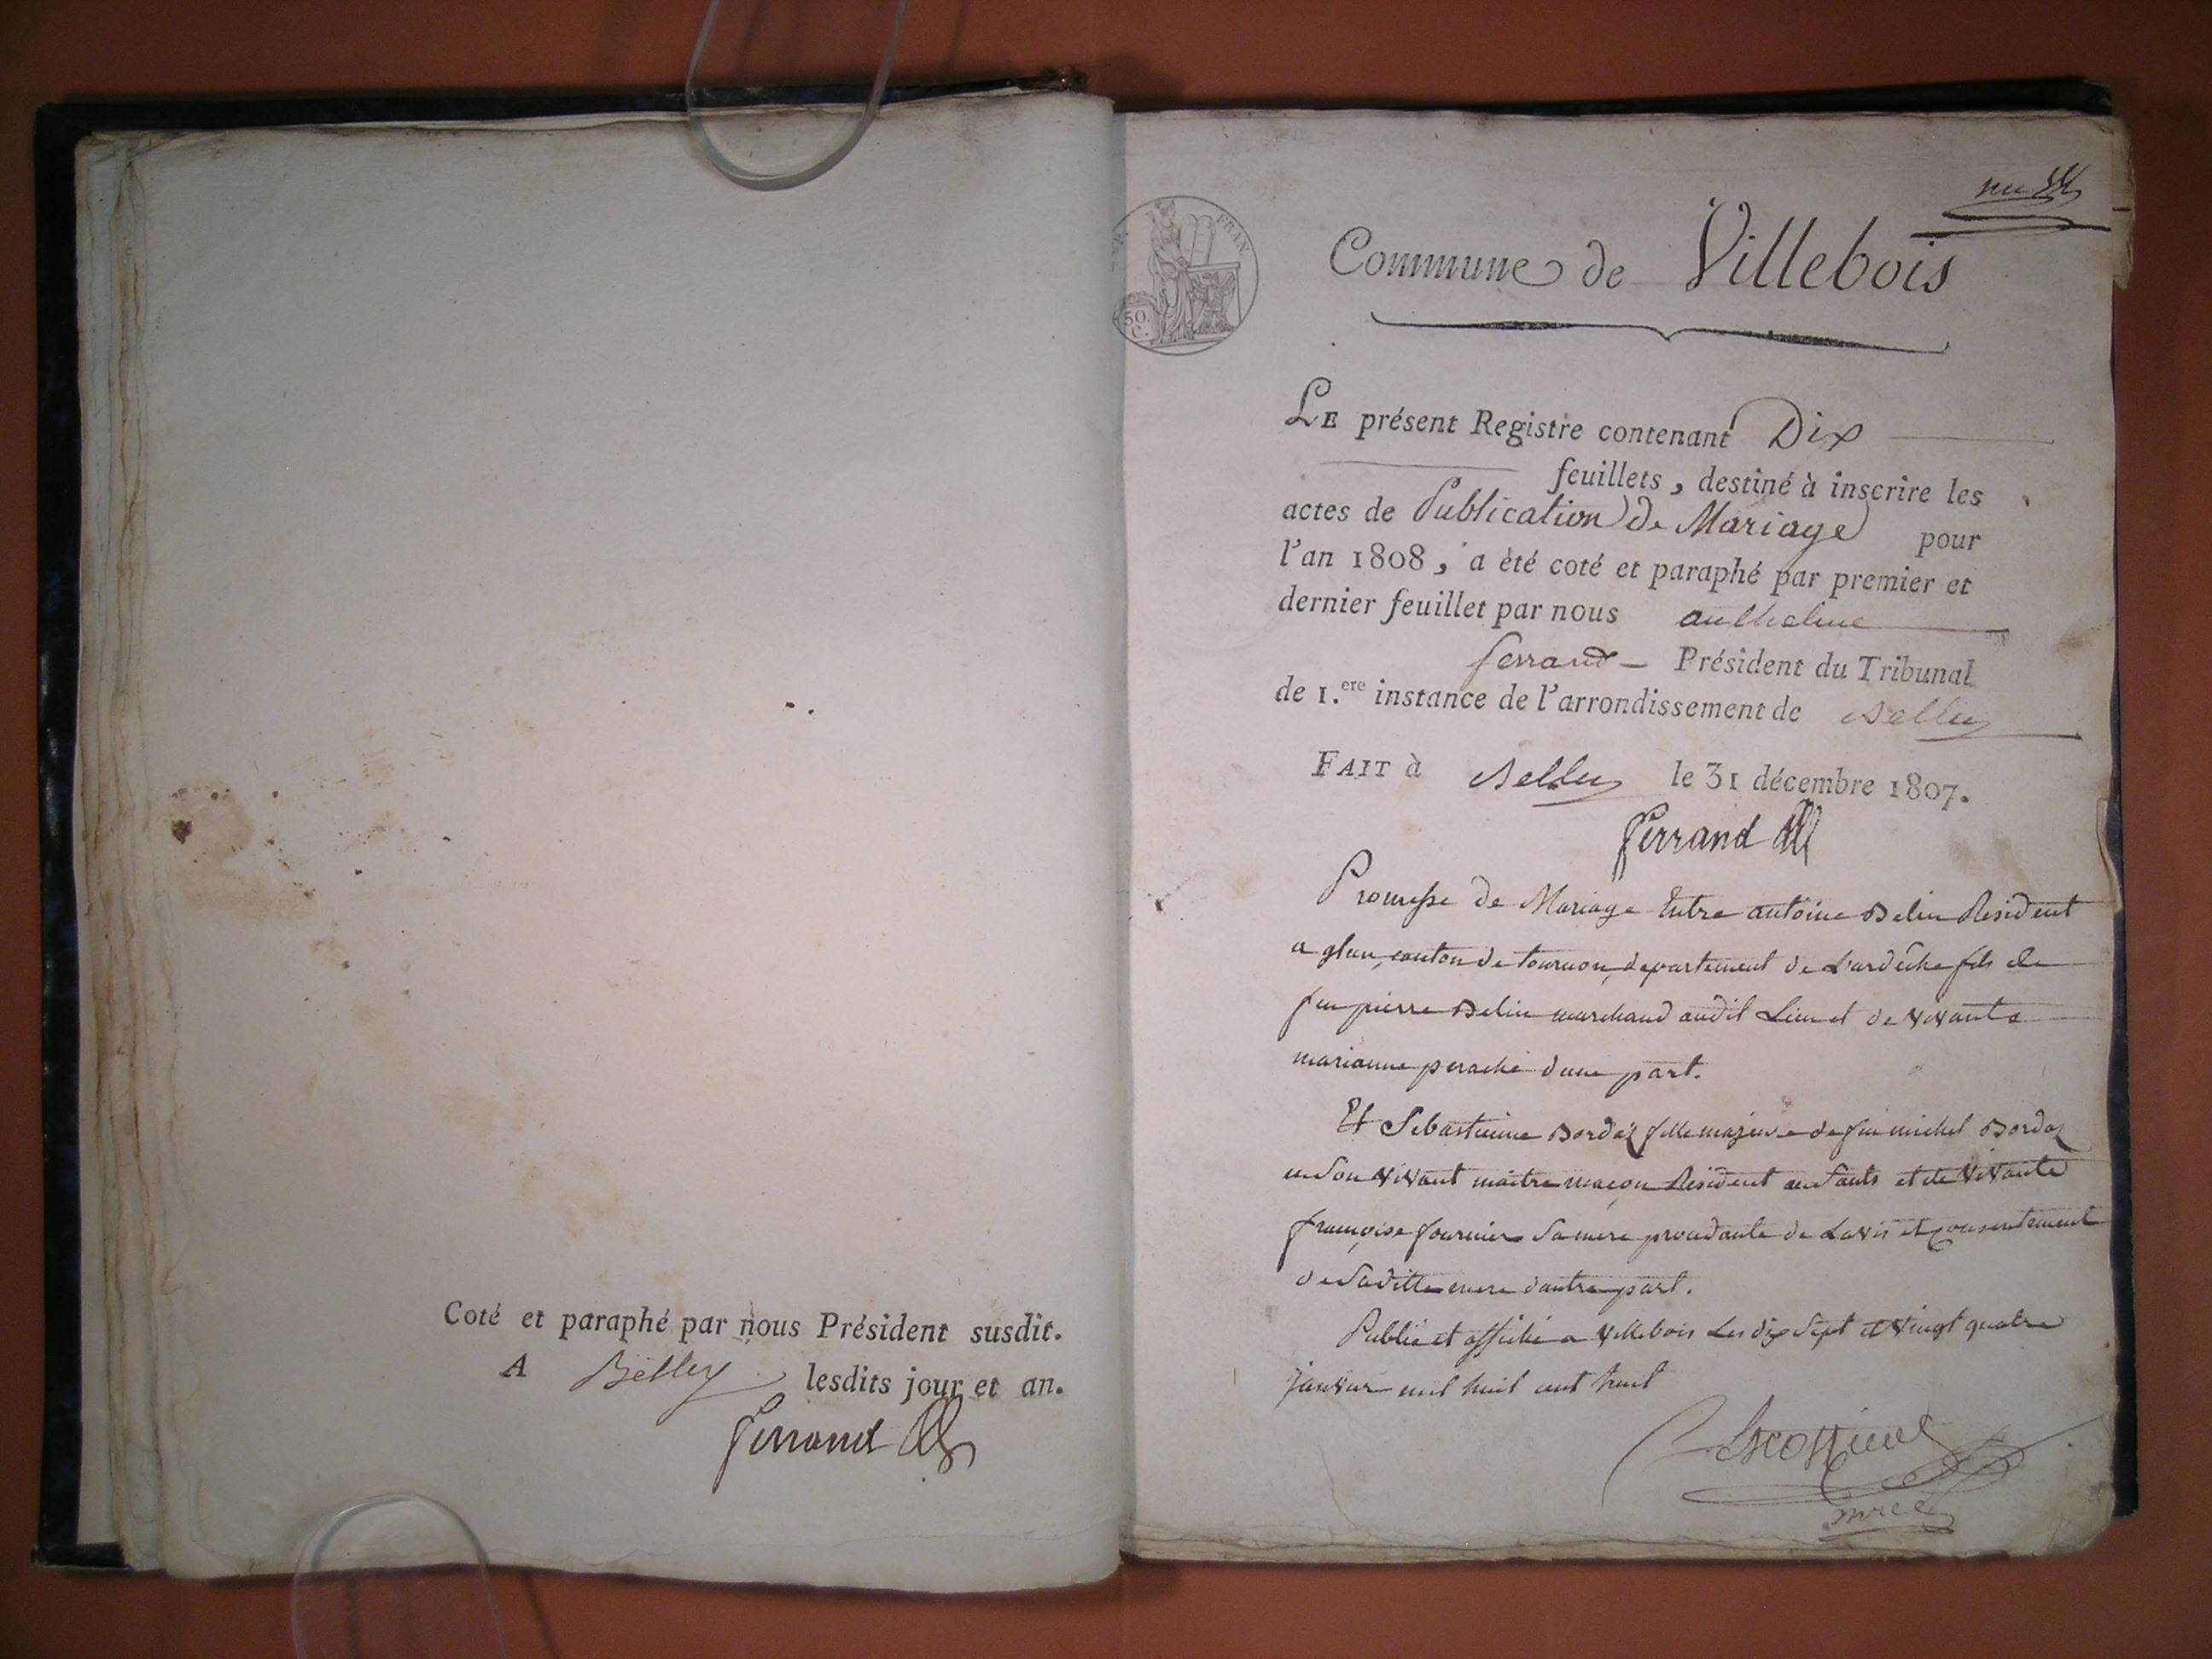 Coté et paraphé par nous Président susdit.
A Belley lesdits jour et an.
Ferrand
FRAN
50.
C.
Commune de Villebois
LE présent Registre contenant Dix
feuillets, destiné à inscrire les
actes de Publication de Mariage pour
l'an 1808, a été coté et paraphé par premier et
dernier feuillet par nous anthelme
ferrand Président du Tribunal
de 1.ere instance de l'arrondissement de Belley
FAIT à Belley le 31 décembre 1807.
Ferrand
Promesse de Mariage Entre antoine Belin Resident
a glun, canton de tournon, departement de L'ardeche fils de
feu pierre Belin marchand audit Lieu et de vivante
marianne perache dune part.
Et Sebastienne Bordaz fille majeure de feu michel Bordaz
en Son vivant maitre maçon Resident au et de vivante
françoise fournier Sa mere procedante de Lavis et consentement
de Saditte mere dautre part.
Publié et affiché a villebois Les dix Sept et vingt quatre
janvier mil huit cent huit